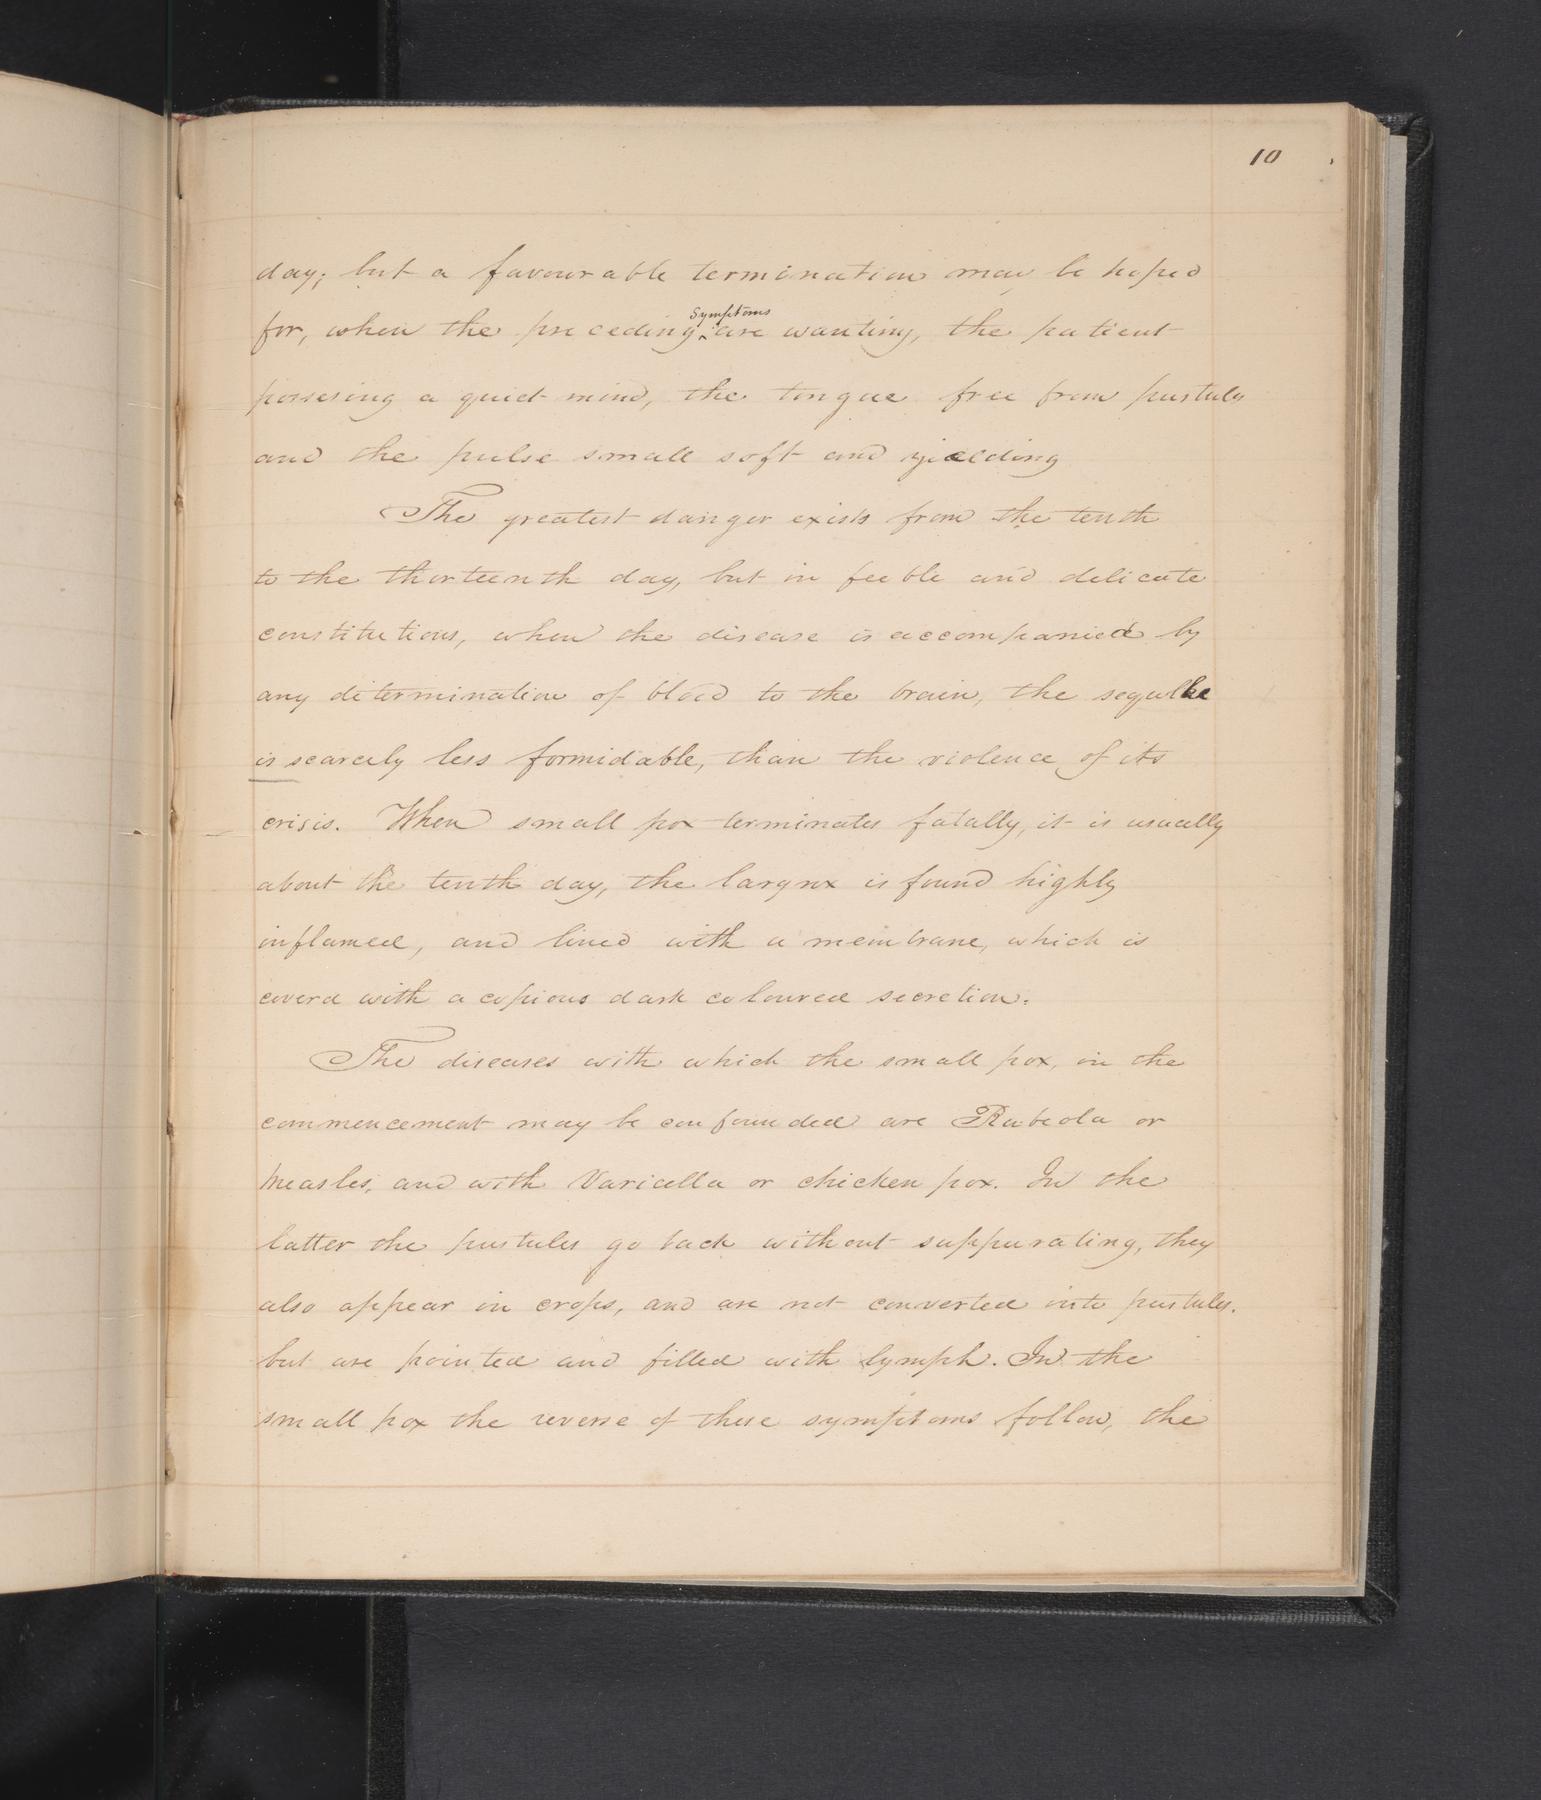 10
day; but a favourable termination may be hoped
for, when the preceding symptoms are wanting, the patient
possesing a quiet mind, the tongue free from pustules
and the pulse small soft and yielding
The greatest danger exists from the tenth
to the thorteenth day, but in feeble and delicate
constitutions, when the disease is accompanied by
any determination of blood to the brain, the
is scarcely less formidable, than the violence of its
crisis. When small pox terminates fatally, it is usually
about the tenth day, the larynx is found highly
inflamed, and lined with a membrane, which is
coverd with a copious dark coloured secretion.
The diseases with which the small pox, in the
commencement may be confounded are Rubeola or
measles, and with Varicella or chicken pox. In the
latter the pustules go back without suppurating, they
also appear in crops, and are not converted into pustules.
but are pointed and filled with lymph. In the
small pox the reverse of these symptoms follow, the